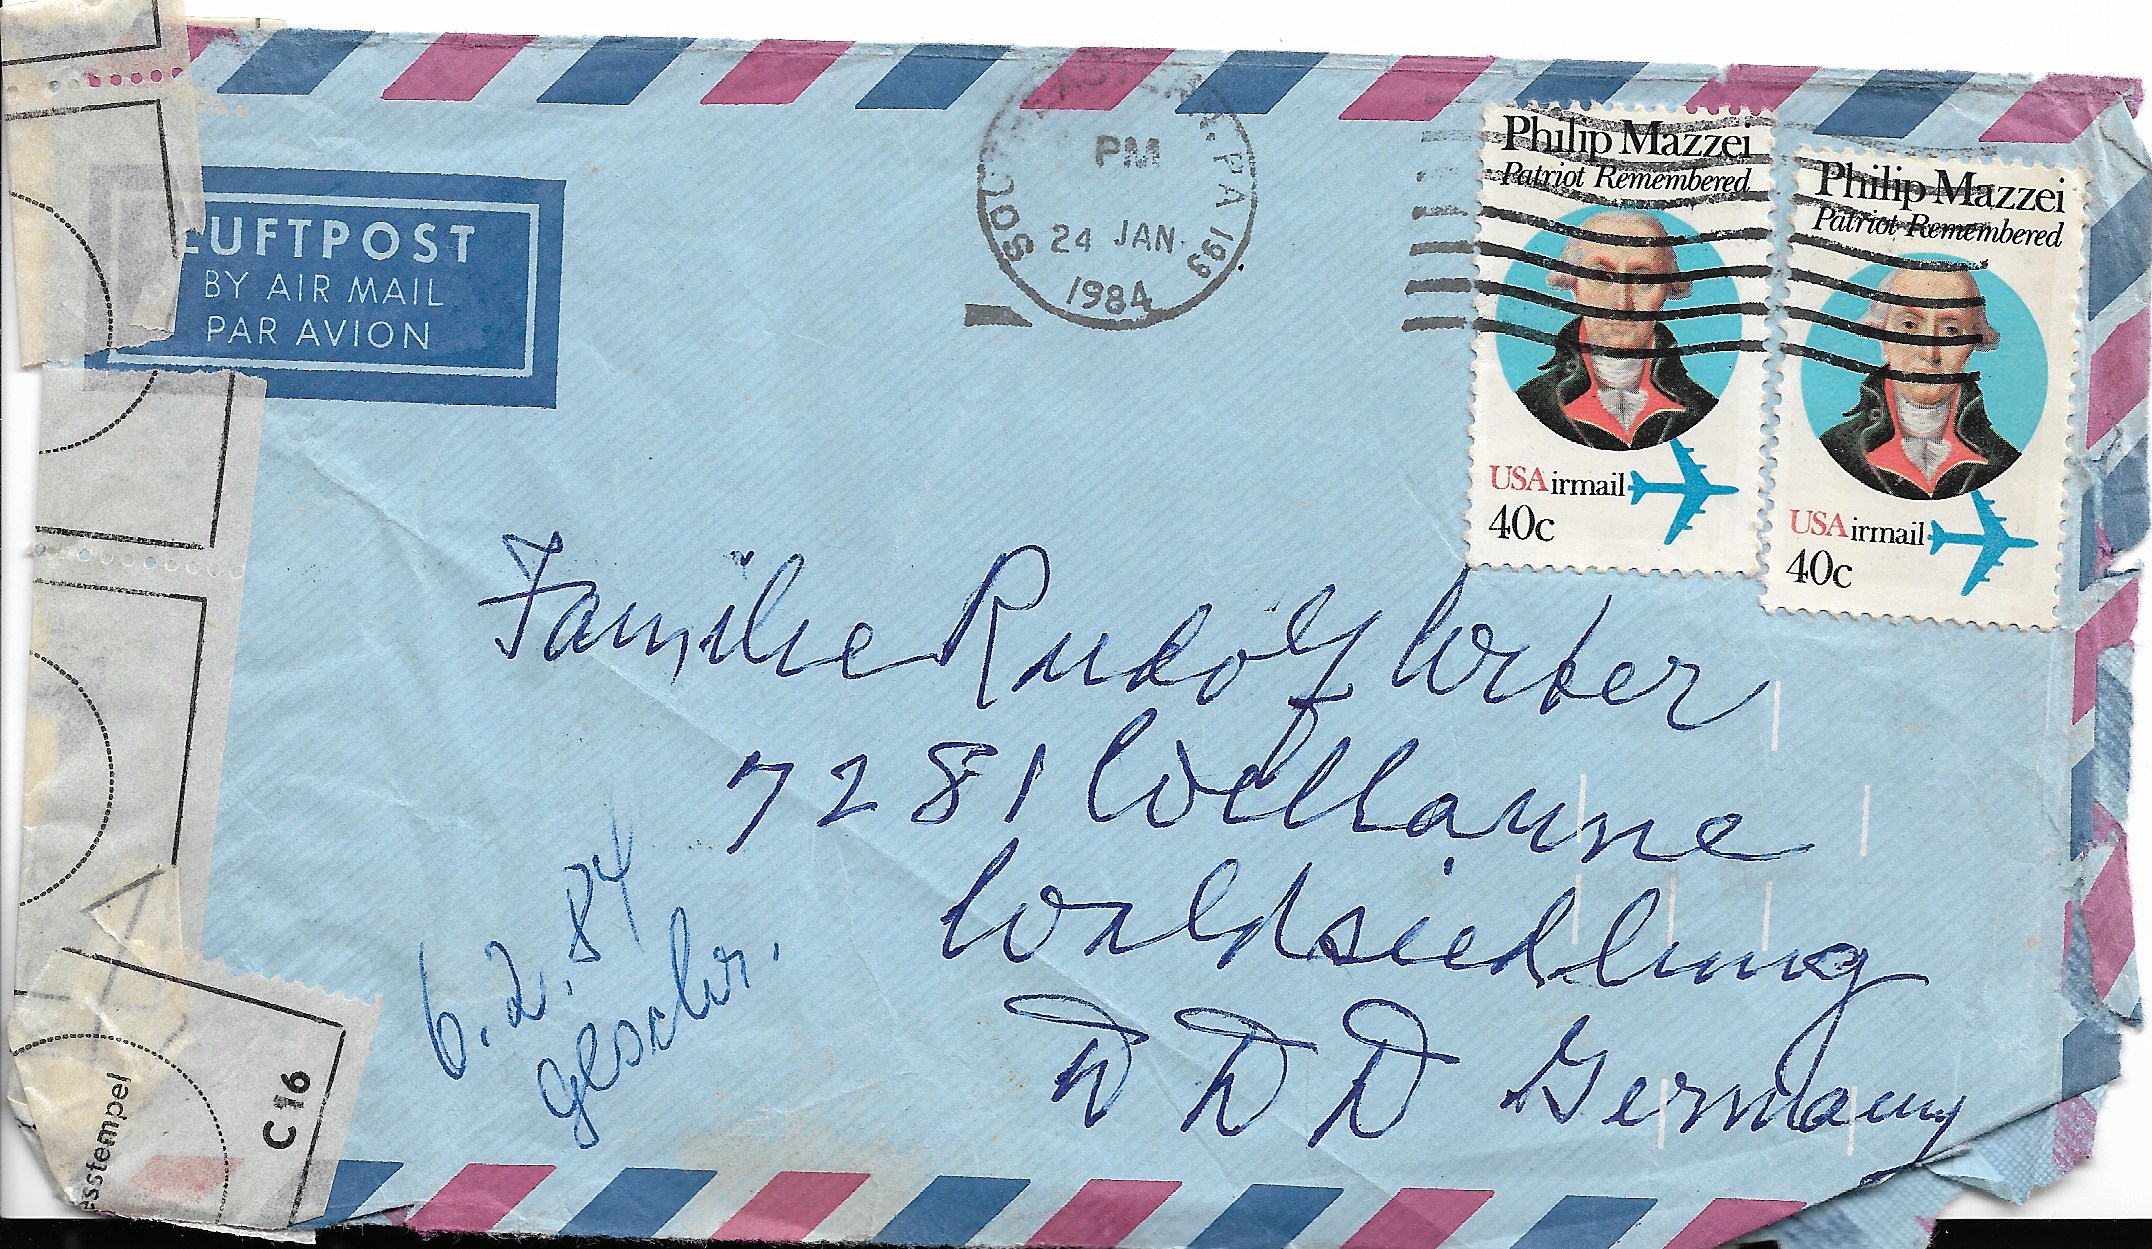 LUFTPOST
BY AIR MAIL
PAR AVION
PA 199
PM
24 JAN.
1984
Philip Mazzei
Patriot Remembered
USAirmail
40c
Philip Mazzei
Patriot Remembered
USAirmail
40c
Familie Rudolf
7281
Waldsiedlung
DDD Germany
6.2.84
geschr.
C 16
esstempel